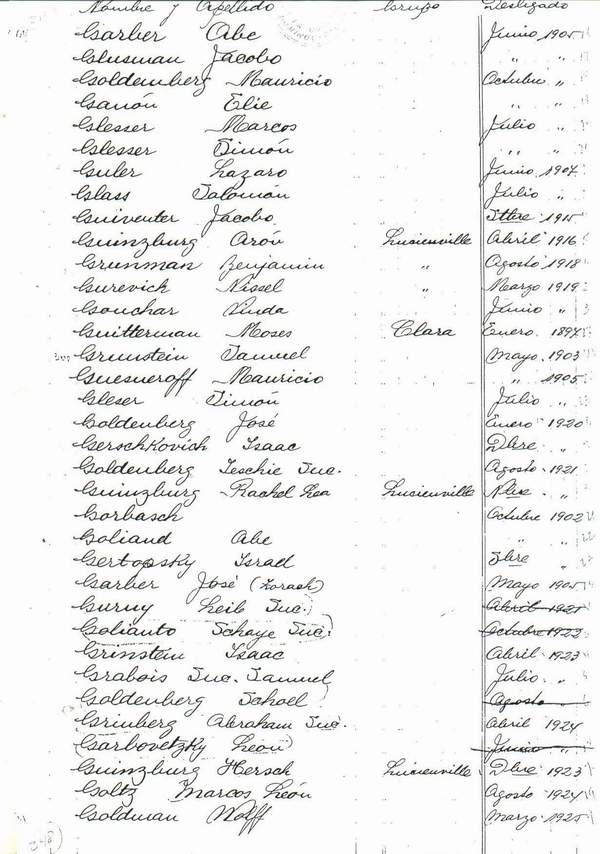 Nombre y Apellido Grupo Desligado
Garber Abe Junio 1905
Glusman Jacobo " "
Goldemberg Mauricio Octubre "
Ganón Elie " "
Glesser Marcos Julio "
Glesser Simón " "
Guler Lazaro Junio 1907
Glass Salomón Julio "
Guiventer Jacobo Stbre 1915
Guinzburg Arón Lucienville Abril 1916
Grunman Benjamin " Agosto 1918
Gurevich Nissel " Marzo 1919
Gouchar Linda Junio "
Guitterman Moses Clara Enero 1897
Grunstein Samuel Mayo 1903
Guesneroff Mauricio " 1905
Gleser Simón Julio "
Goldenberg José Enero 1920
Gerschkovich Isaac Dbre "
Goldenberg Jeschie Suc. Agosto 1921
Guinzburg Rachel Lea Lucienville Nbre "
Gorbasch Octubre 1902
Goliand Abe " "
Gertopsky Israel
Garber José (Zorach) Mayo 1905
Guruy Leib Suc. Abril 1921
Golianto Schaye Suc. Octubre 1922
Grinstein Isaac Abril 1923
Grabois Suc. Samuel Julio "
Goldenberg Schoel Agosto "
Grinberg Abraham Suc. Abril 1924
(Garbovetzky León) Junio "
Guinzburg Hersch Lucienville Dbre 1923
Goltz Marcos León Agosto 1924
Goldman Wolff Marzo 1925